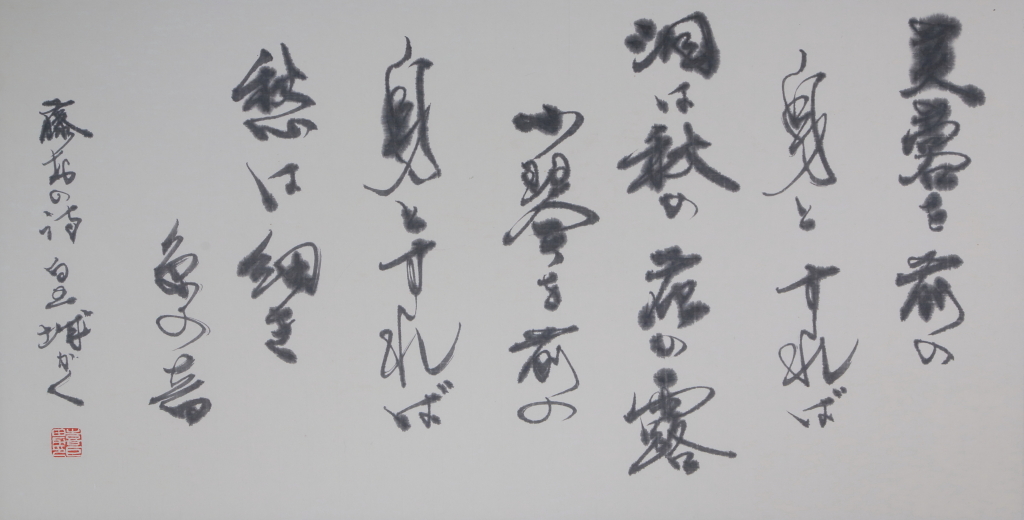 芙蓉を前の
身とすれば
泪は秋の花の露
小琴を前の
身とすれば
愁は細き
糸の音
藤村の詩 皇城かく